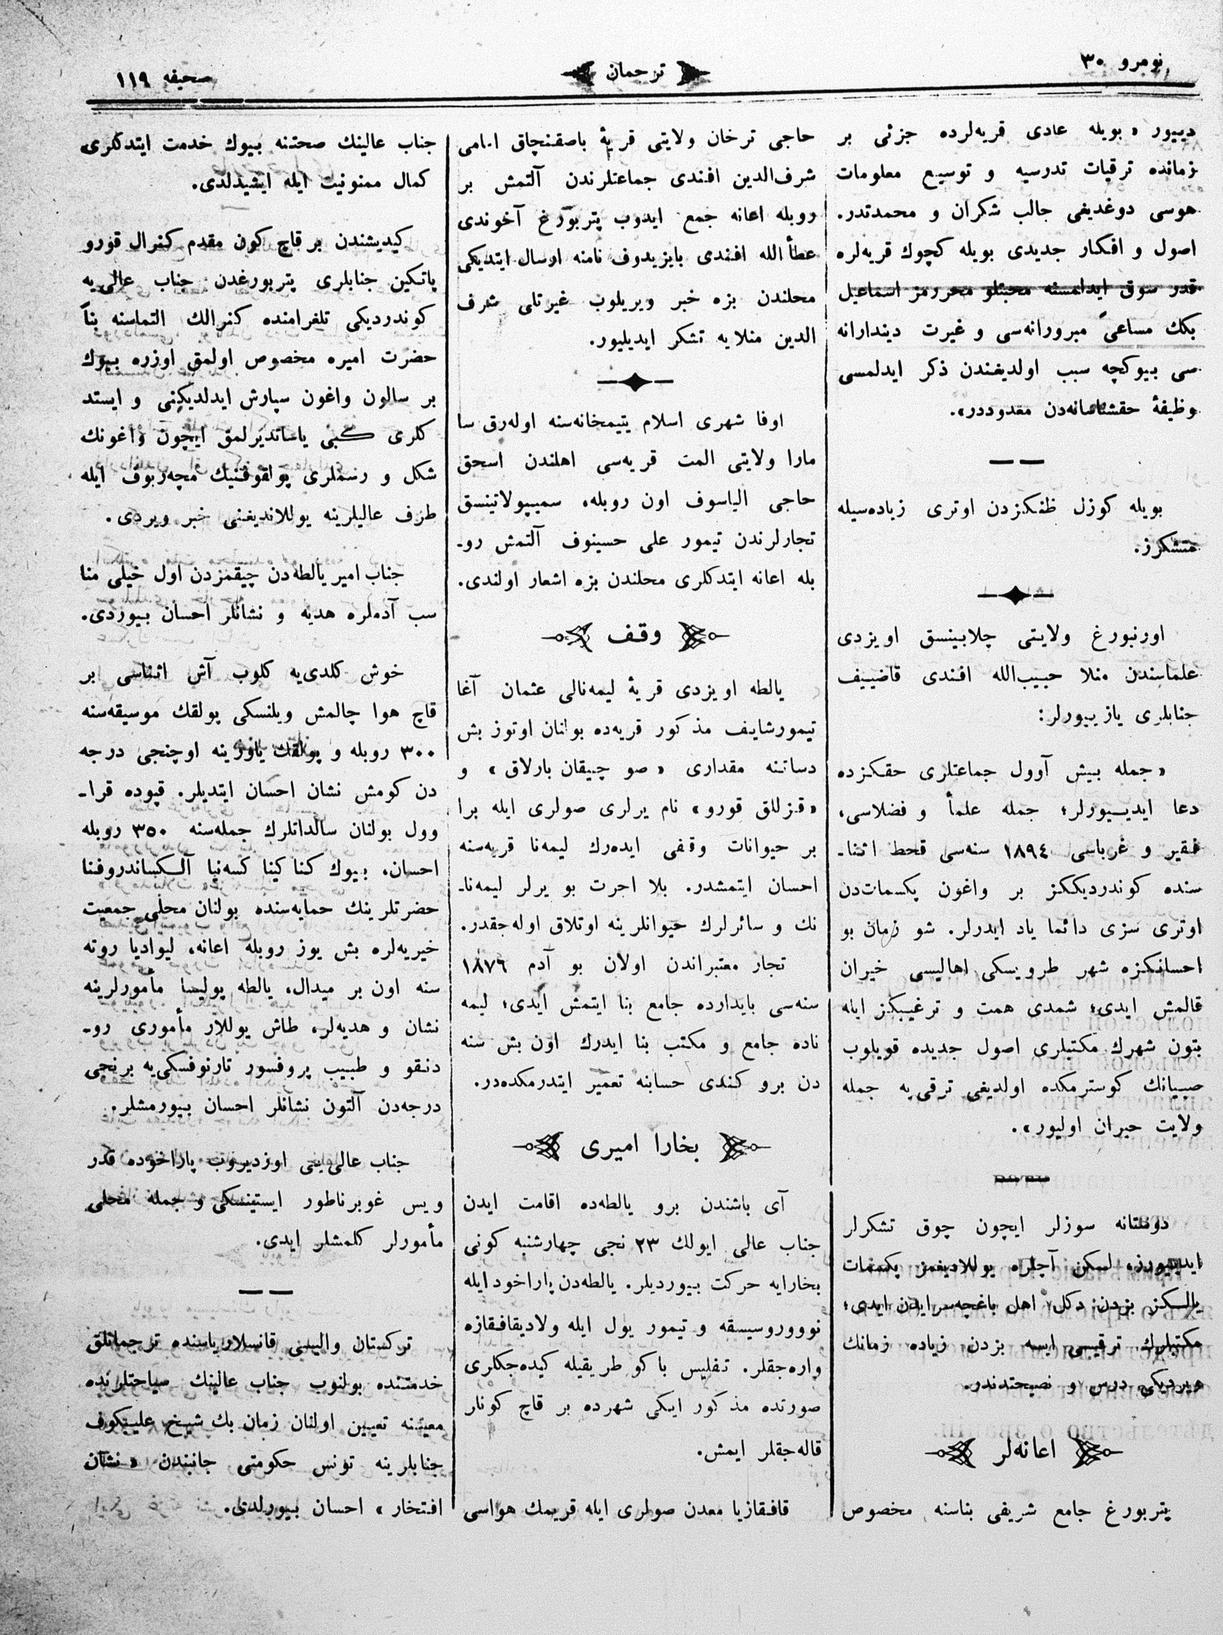 نومرو ٣٠
ترجمان
صحيفه ١١٩
ديیور « بويله عادى قريه‌لرده جزئى بر
زمانده ترقيات تدرسيه و توسيع معلومات
هوسى دوغديغى جالب شكران و محمدتدر.
اصول و افكار جديدى بويله كچوك قريه‌لره
قدر سوق ايدلمسنه محبتلو محررمز اسماعيل
بكك مساعئ مبرورانه‌سى و غيرت ديندارانه
سى بيوكچه سبب اولديغندن ذكر ايدلمسى
وظيفۀ حقشناسانه‌دن معدوددر».
بويله كوزل ظنكزدن اوترى زياده‌سيله
متشكرز.
اورنبورغ ولايتى چلابينسق اويزدى
علماسندن منلا حبيب‌الله افندى قاضييف
جنابلرى يازييورلر:
« جمله بيش آوول جماعتلرى حقكزده
دعا ايدييورلر؛ جمله علمأ و فضلاسى،
فقير و غرباسى ١٨٩٤ سنه‌سى قحط اثنا-
سنده كوندرديككز بر واغون پكسمات‌دن
اوترى سزى دائما ياد ايدرلر. شو زمان بو
احسانكزه شهر طرويسكى اهاليسى خيران
قالمش ايدى؛ شمدى همت و ترغيبكز ايله
بتون شهرك مكتبلرى اصول جديده قويلوب
صبيانك كوسترمكده اولديغى ترقى‌يه جمله
ولايت حيران اوليور».
دوستانه سوزلر ايچون چوق تشكرلر
ايدييورز، لسكن آجلره يوللاديغمز پكسمات
يالكز بزدن دكل، اهل باغچه‌سرايدن ايدى؛
مكتبلرك ترقيسى ايسه بزدن زياده زمانك
ويرديكى درس و نصيحتدندر.
اعانه‌لر
پتربورغ جامع شريفى بناسنه مخصوص
حاجى ترخان ولايتى قريۀ باصقنچاق امامى
شرف‌الدين افندى جماعتلرندن آلتمش بر
روبله اعانه جمع ايدوب پتربورغ آخوندى
عطأالله افندى بايزيدوف نامنه ارسال ايتديكى
محلندن بزه خبر ويريلوب غيرتلى شرف
الدين منلايه تشكر ايديليور.
اوفا شهرى اسلام يتيمخانه‌سنه اوله‌رق سا
مارا ولايتى المت قريه‌سى اهلندن اسحق
حاجى الياسوف اون روبله، سمييپولاتينسق
تجارلرندن تيمور على حسينوف آلتمش رو-
بله اعانه ايتدكلرى محلندن بزه اشعار اولندى.
وقف
يالطه اويزدى قريۀ ليمه‌نالى عثمان آغا
تيمورشايف مذكور قريه‌ده بولنان اوتوز بش
دساتنه مقدارى « صو چيقان بارلاق » و
« قزللق قورو » نام يرلرى صولرى ايله برا
بر حيوانات وقفى ايده‌رك ليمه‌نا قريه‌سنه
احسان ايتمشدر. بلا اجرت بو يرلر ليمه‌نا-
نك و سائرلرك حيوانلرينه اوتلاق اوله‌جقدر.
تجار معتبراندن اولان بو آدم ١٨٧٦
سنه‌سى بايدارده جامع بنا ايتمش ايدى؛ ليمه
ناده جامع و مكتب بنا ايدرك اون بش سنه
دن برو كندى حسابنه تعمير ايتدرمكده‌در.
بخارا اميرى
آى باشندن برو يالطه‌ده اقامت ايدن
جناب عالى ايولك ٢٣ نجى چهارشنبه كونى
بخارايه حركت بيورديلر. يالطه‌دن پاراخود ايله
نوووروسيسقه و تيمور يول ايله ولاديقافقازه
واره‌جقلر. تفليس باكو طريقيله كيده‌جكلرى
صورتده مذكور ايكى شهرده بر قاچ كونار
قاله‌جقلر ايمش.
قافقازيا معدن صولرى ايله قريمك هواسى
جناب عالينك صحتنه بيوك خدمت ايتدكلرى
كمال ممنونيت ايله ايشيدلدى.
كيديشندن بر قاچ كون مقدم كنرال قورو
پاتكين جنابلرى پتربورغدن جناب عالى‌يه
كوندرديكى تلغرامنده كنرالك التماسنه بنأ
حضرت اميره مخصوص اولمق اوزره بيوك
بر سالون واغون سپارش ايدلديكنى و ايستد
كلرى كبى ياساتديرلمق ايچون واغونك
شكل و رسملرى پولقوفنيك مچه‌ربوف ايله
طرف عاليلرينه يوللانديغنى خبر ويردى.
جناب امير يالطه‌دن چيقمزدن اول خيلى منا
سب آدملره هديه و نشانلر احسان بيوردى.
خوش كلدى‌يه كلوب آش اثناسى بر
قاچ هوا چالمش ويلنسكى پولقك موسيقه‌سنه
٣٠٠ روبله و پولقك ياورينه اوچنجى درجه
دن كومش نشان احسان ايتديلر. قپوده قرا-
وول بولنان سالداتلرك جمله‌سنه ٣٥٠ روبله
احسان، بيوك كناكينا كسه‌نيا آلكساندروفنا
حضرتلرينك حمايه‌سنده بولنان محلى جمعيت
خيريه‌لره بش يوز روبله اعانه، ليواديا روته
سنه اون بر ميدال، يالطه پوليسا مأمورلرينه
نشان و هديه‌لر، طاش يوللار مأمورى رو-
دنقو و طبيب پروفسور تارنوفسكى‌يه برنجى
درجه‌دن آلتون نشانلر احسان بيورمشلر.
جناب عالى‌يى اوزديروب پاراخوده قدر
ويس غوبرناطور ايستينسكى و جمله محلى
مأمورلر كلمشلر ايدى.
تركستان واليسى قانسلارياسنده ترجمانلق
خدمتنده بولنوب جناب عالينك سياحتلرنده
معيتنه تعيين اولنان زمان بك شيخ عليبكوف
جنابلرينه تونس حكومتى جانبندن « نشان
افتخار » احسان بيورلدى.